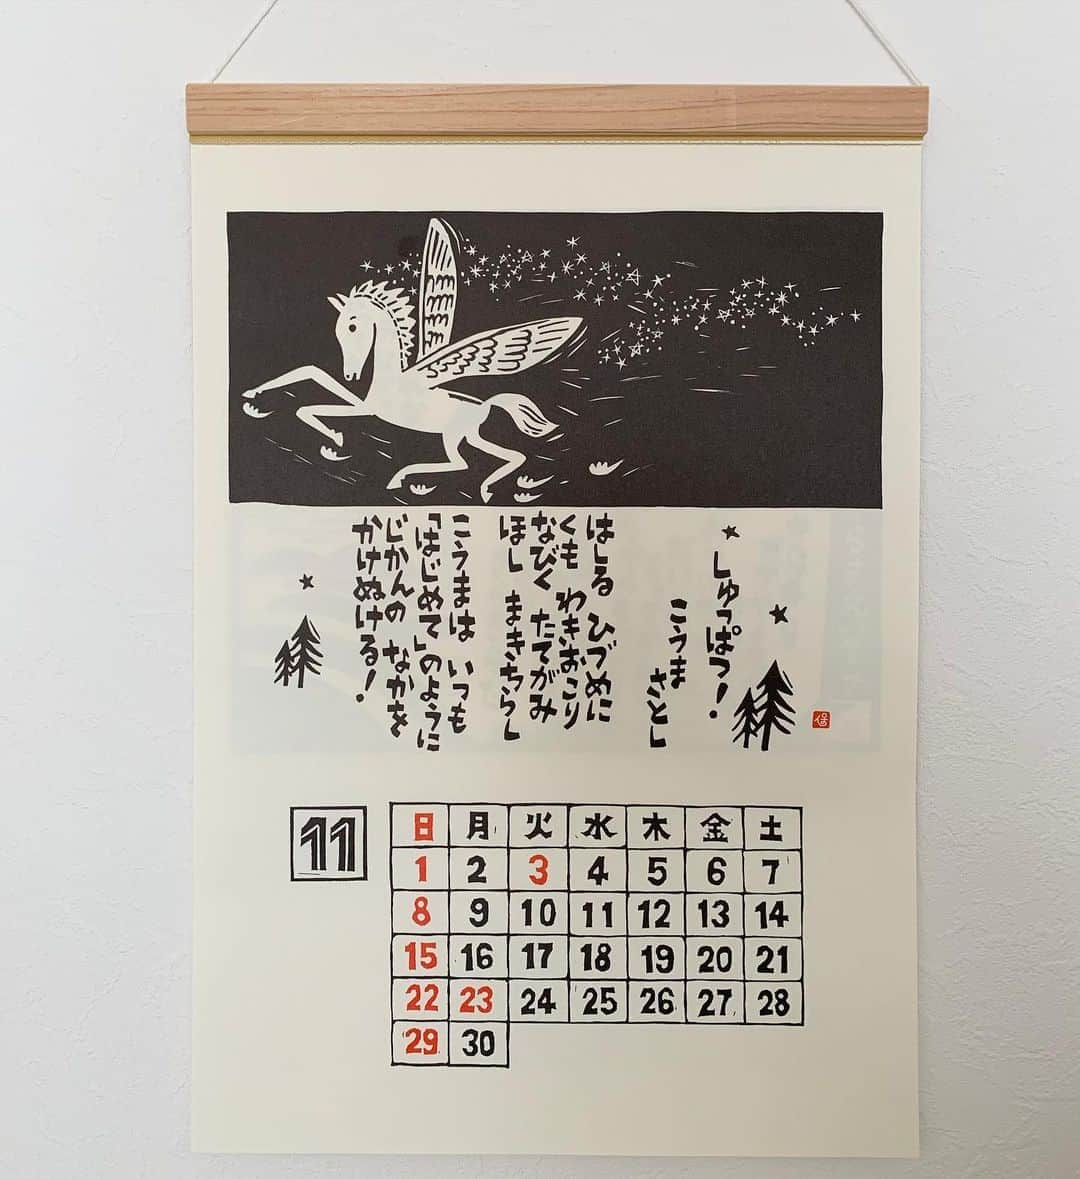 しゅっぱつ!
こうま さとし
はしる ひづめに
くも わきおこり
なびく たてがみ
ほし まきちらし
こうまは いつも
「はじめて」のように
じかんの なかを
かけぬける!
保
11
日 月 火 水 木 金 土
1 2 3 4 5 6 7
8 9 10 11 12 13 14
15 16 17 18 19 20 21
22 23 24 25 26 27 28
29 30